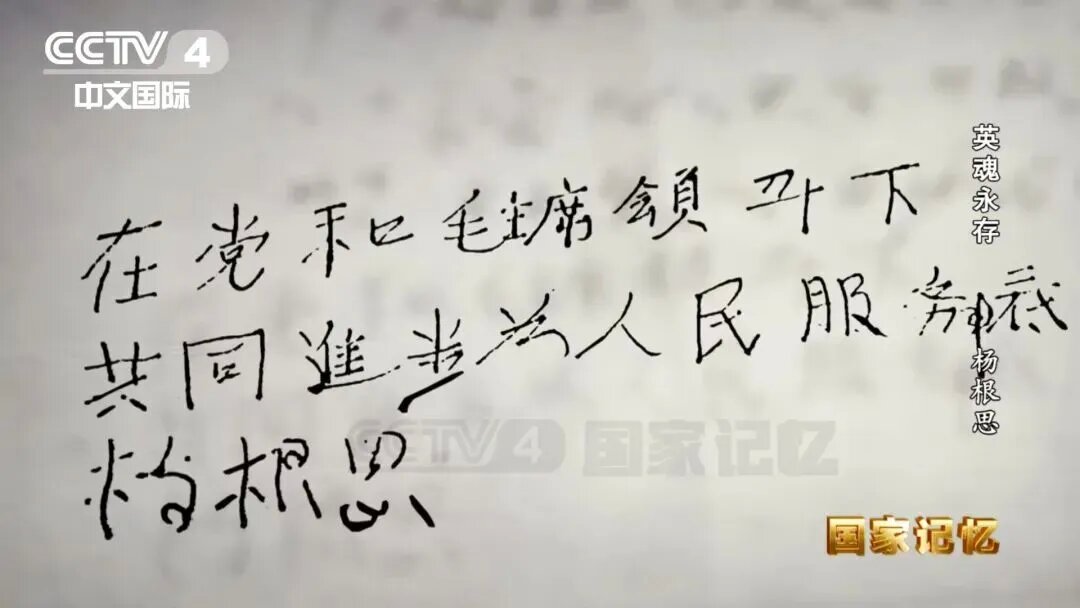 CCTV 4
中文国际
英魂永存 杨根思
在党和毛主席領下
共同進步为人民服务底
杨根思
CCTV 4 国家记忆
国家记忆